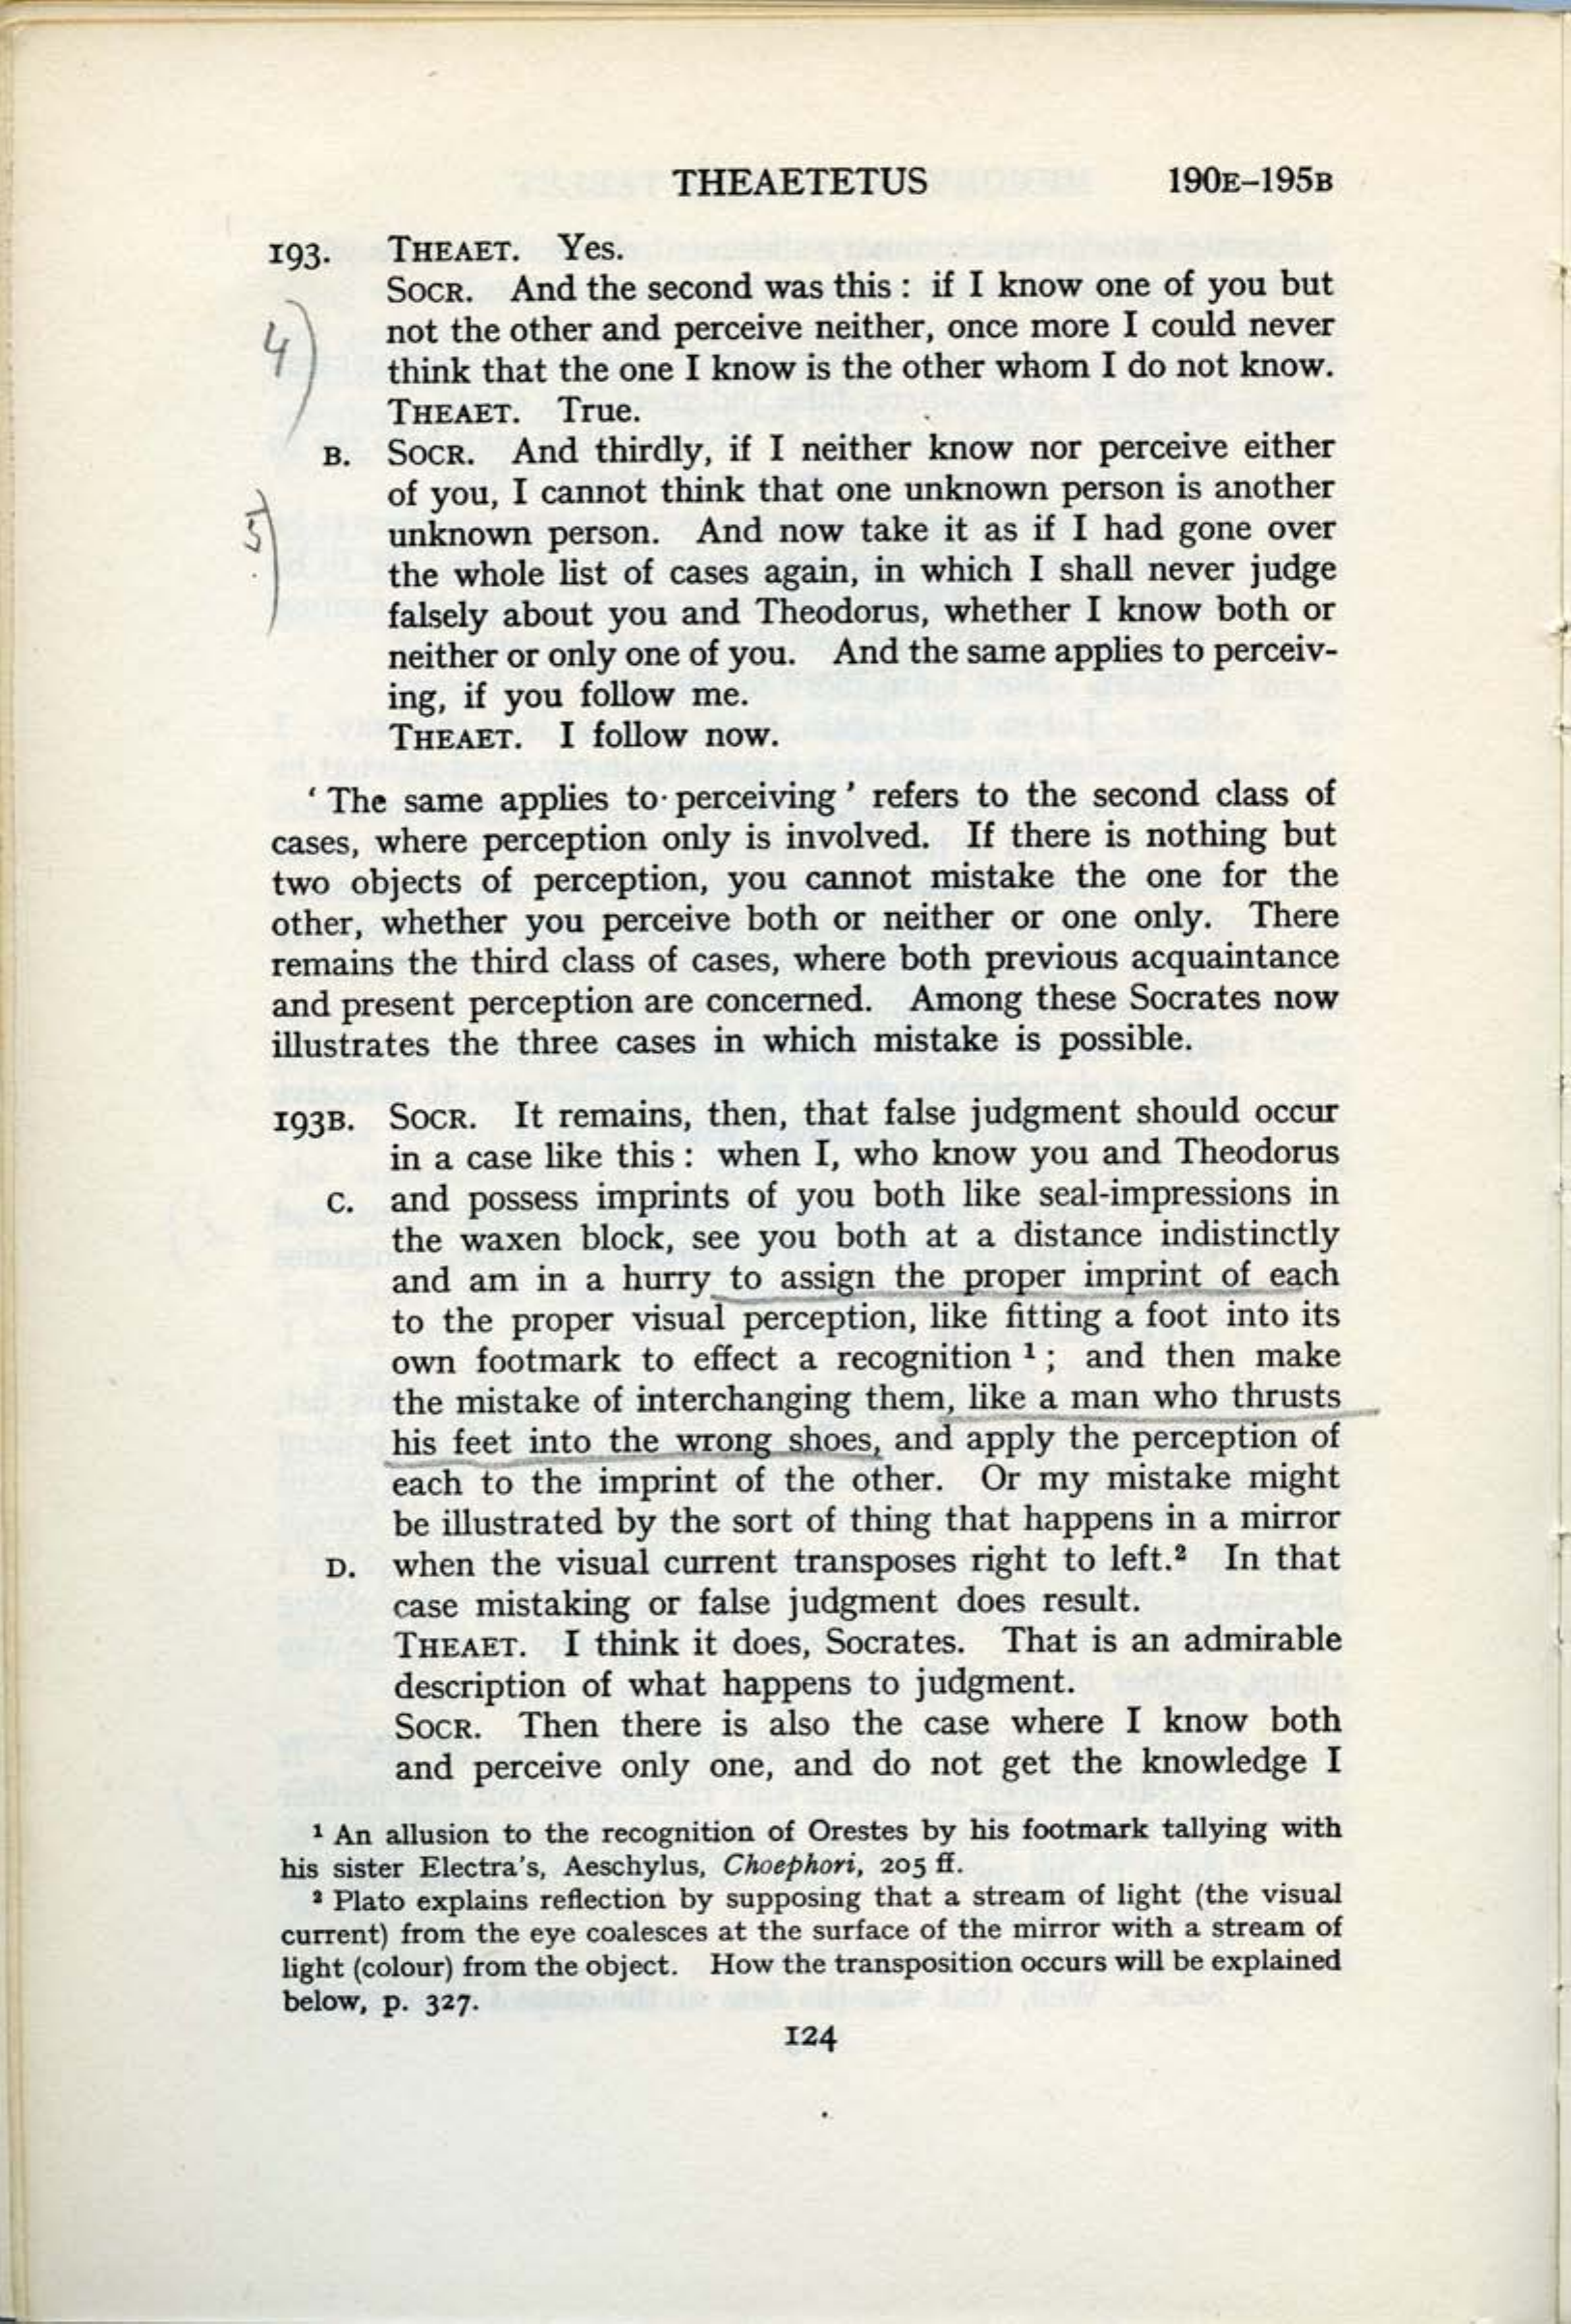 THEAETETUS 190E–195B
193. THEAET. Yes.
SOCR. And the second was this : if I know one of you but
4) not the other and perceive neither, once more I could never
think that the one I know is the other whom I do not know.
THEAET. True.
B. SOCR. And thirdly, if I neither know nor perceive either
of you, I cannot think that one unknown person is another
5) unknown person. And now take it as if I had gone over
the whole list of cases again, in which I shall never judge
falsely about you and Theodorus, whether I know both or
neither or only one of you. And the same applies to perceiv-
ing, if you follow me.
THEAET. I follow now.
‘ The same applies to perceiving ’ refers to the second class of
cases, where perception only is involved. If there is nothing but
two objects of perception, you cannot mistake the one for the
other, whether you perceive both or neither or one only. There
remains the third class of cases, where both previous acquaintance
and present perception are concerned. Among these Socrates now
illustrates the three cases in which mistake is possible.
193B. SOCR. It remains, then, that false judgment should occur
in a case like this : when I, who know you and Theodorus
C. and possess imprints of you both like seal-impressions in
the waxen block, see you both at a distance indistinctly
and am in a hurry to assign the proper imprint of each
to the proper visual perception, like fitting a foot into its
own footmark to effect a recognition ¹ ; and then make
the mistake of interchanging them, like a man who thrusts
his feet into the wrong shoes, and apply the perception of
each to the imprint of the other. Or my mistake might
be illustrated by the sort of thing that happens in a mirror
D. when the visual current transposes right to left.² In that
case mistaking or false judgment does result.
THEAET. I think it does, Socrates. That is an admirable
description of what happens to judgment.
SOCR. Then there is also the case where I know both
and perceive only one, and do not get the knowledge I
¹ An allusion to the recognition of Orestes by his footmark tallying with
his sister Electra's, Aeschylus, Choephori, 205 ff.
² Plato explains reflection by supposing that a stream of light (the visual
current) from the eye coalesces at the surface of the mirror with a stream of
light (colour) from the object. How the transposition occurs will be explained
below, p. 327.
124